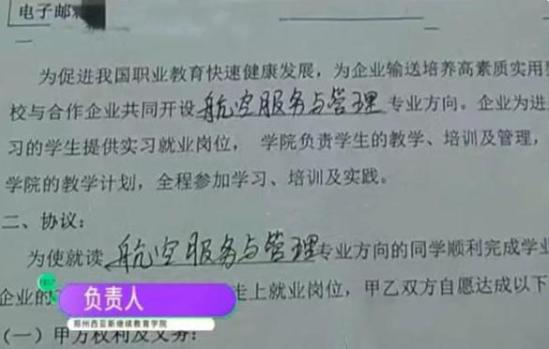 电子邮箱
为促进我国职业教育快速健康发展，为企业输送培养高素质实用
校与合作企业共同开设航空服务与管理专业方向。企业为进
习的学生提供实习就业岗位，学院负责学生的教学、培训及管理，
学院的教学计划，全程参加学习、培训及实践。
二、协议：
为使就读航空服务与管理专业方向的同学顺利完成学业
企业的
走上就业岗位，甲乙双方自愿达成以下
负责人
郑州西亚斯继续教育学院
（一）甲方权利及义务：